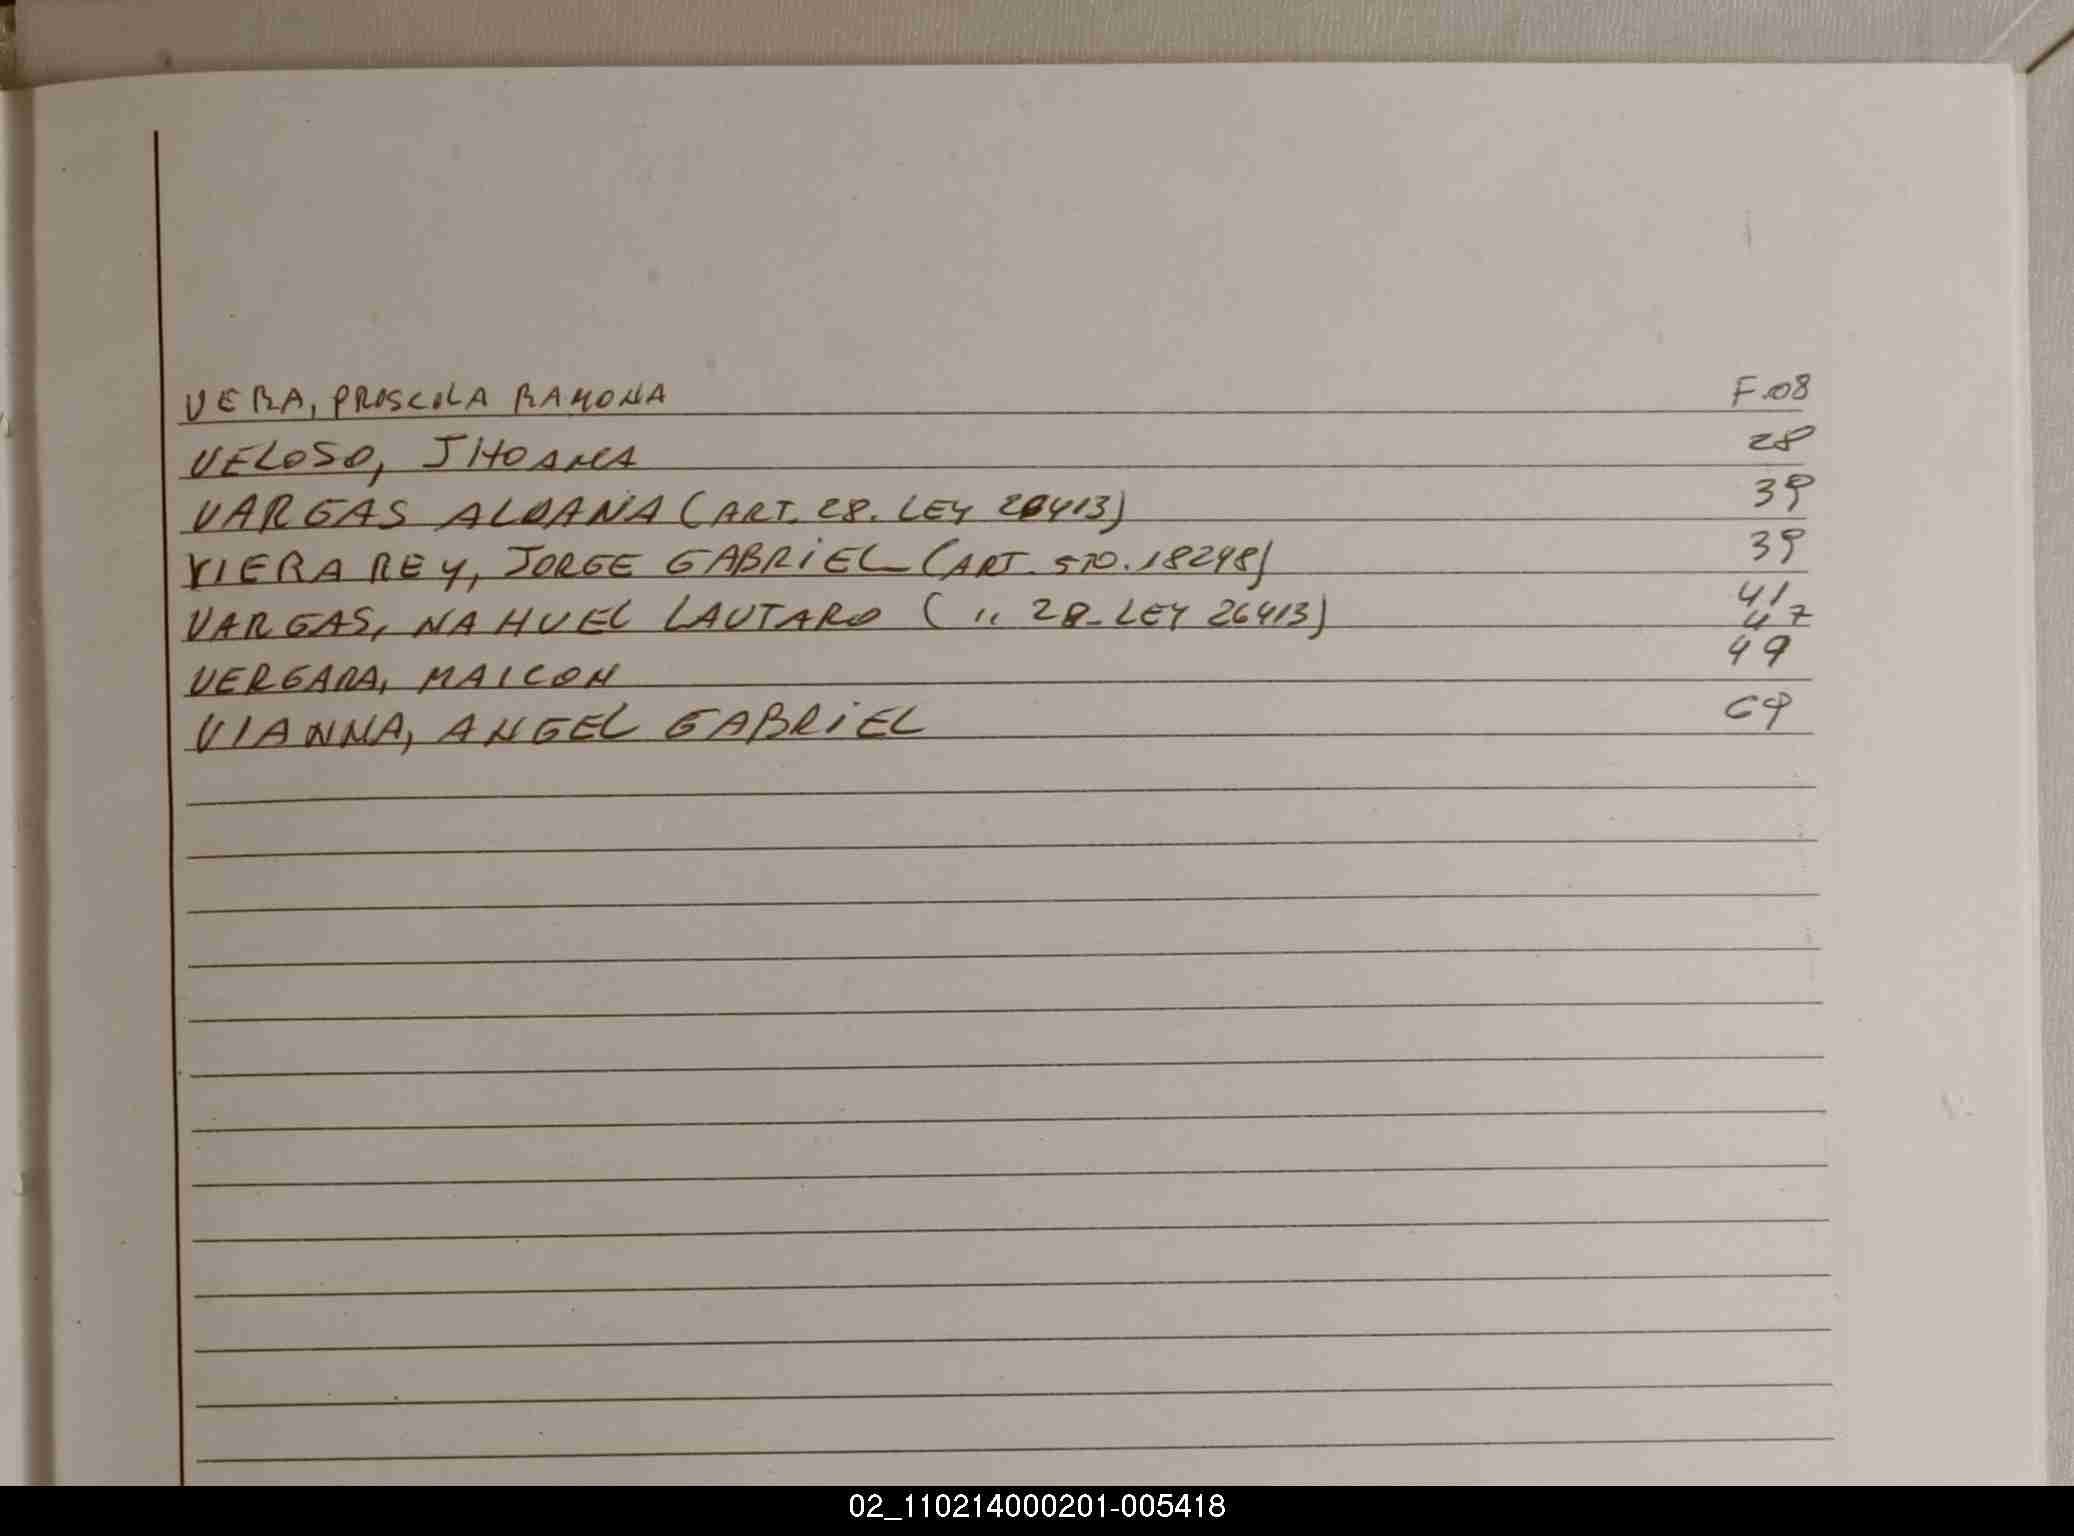 VERA, PRISCILA RAMONA F.08
VELOSO, JHOANA 28
VARGAS ALDANA (ART. 28. LEY 26413) 39
VIERA REY, JORGE GABRIEL (ART. 5TO. 18248) 39
VARGAS, NAHUEL LAUTARO ( " 28- LEY 26413) 41
47
VERGARA, MAICON 49
VIANNA, ANGEL GABRIEL 69
02_110214000201-005418